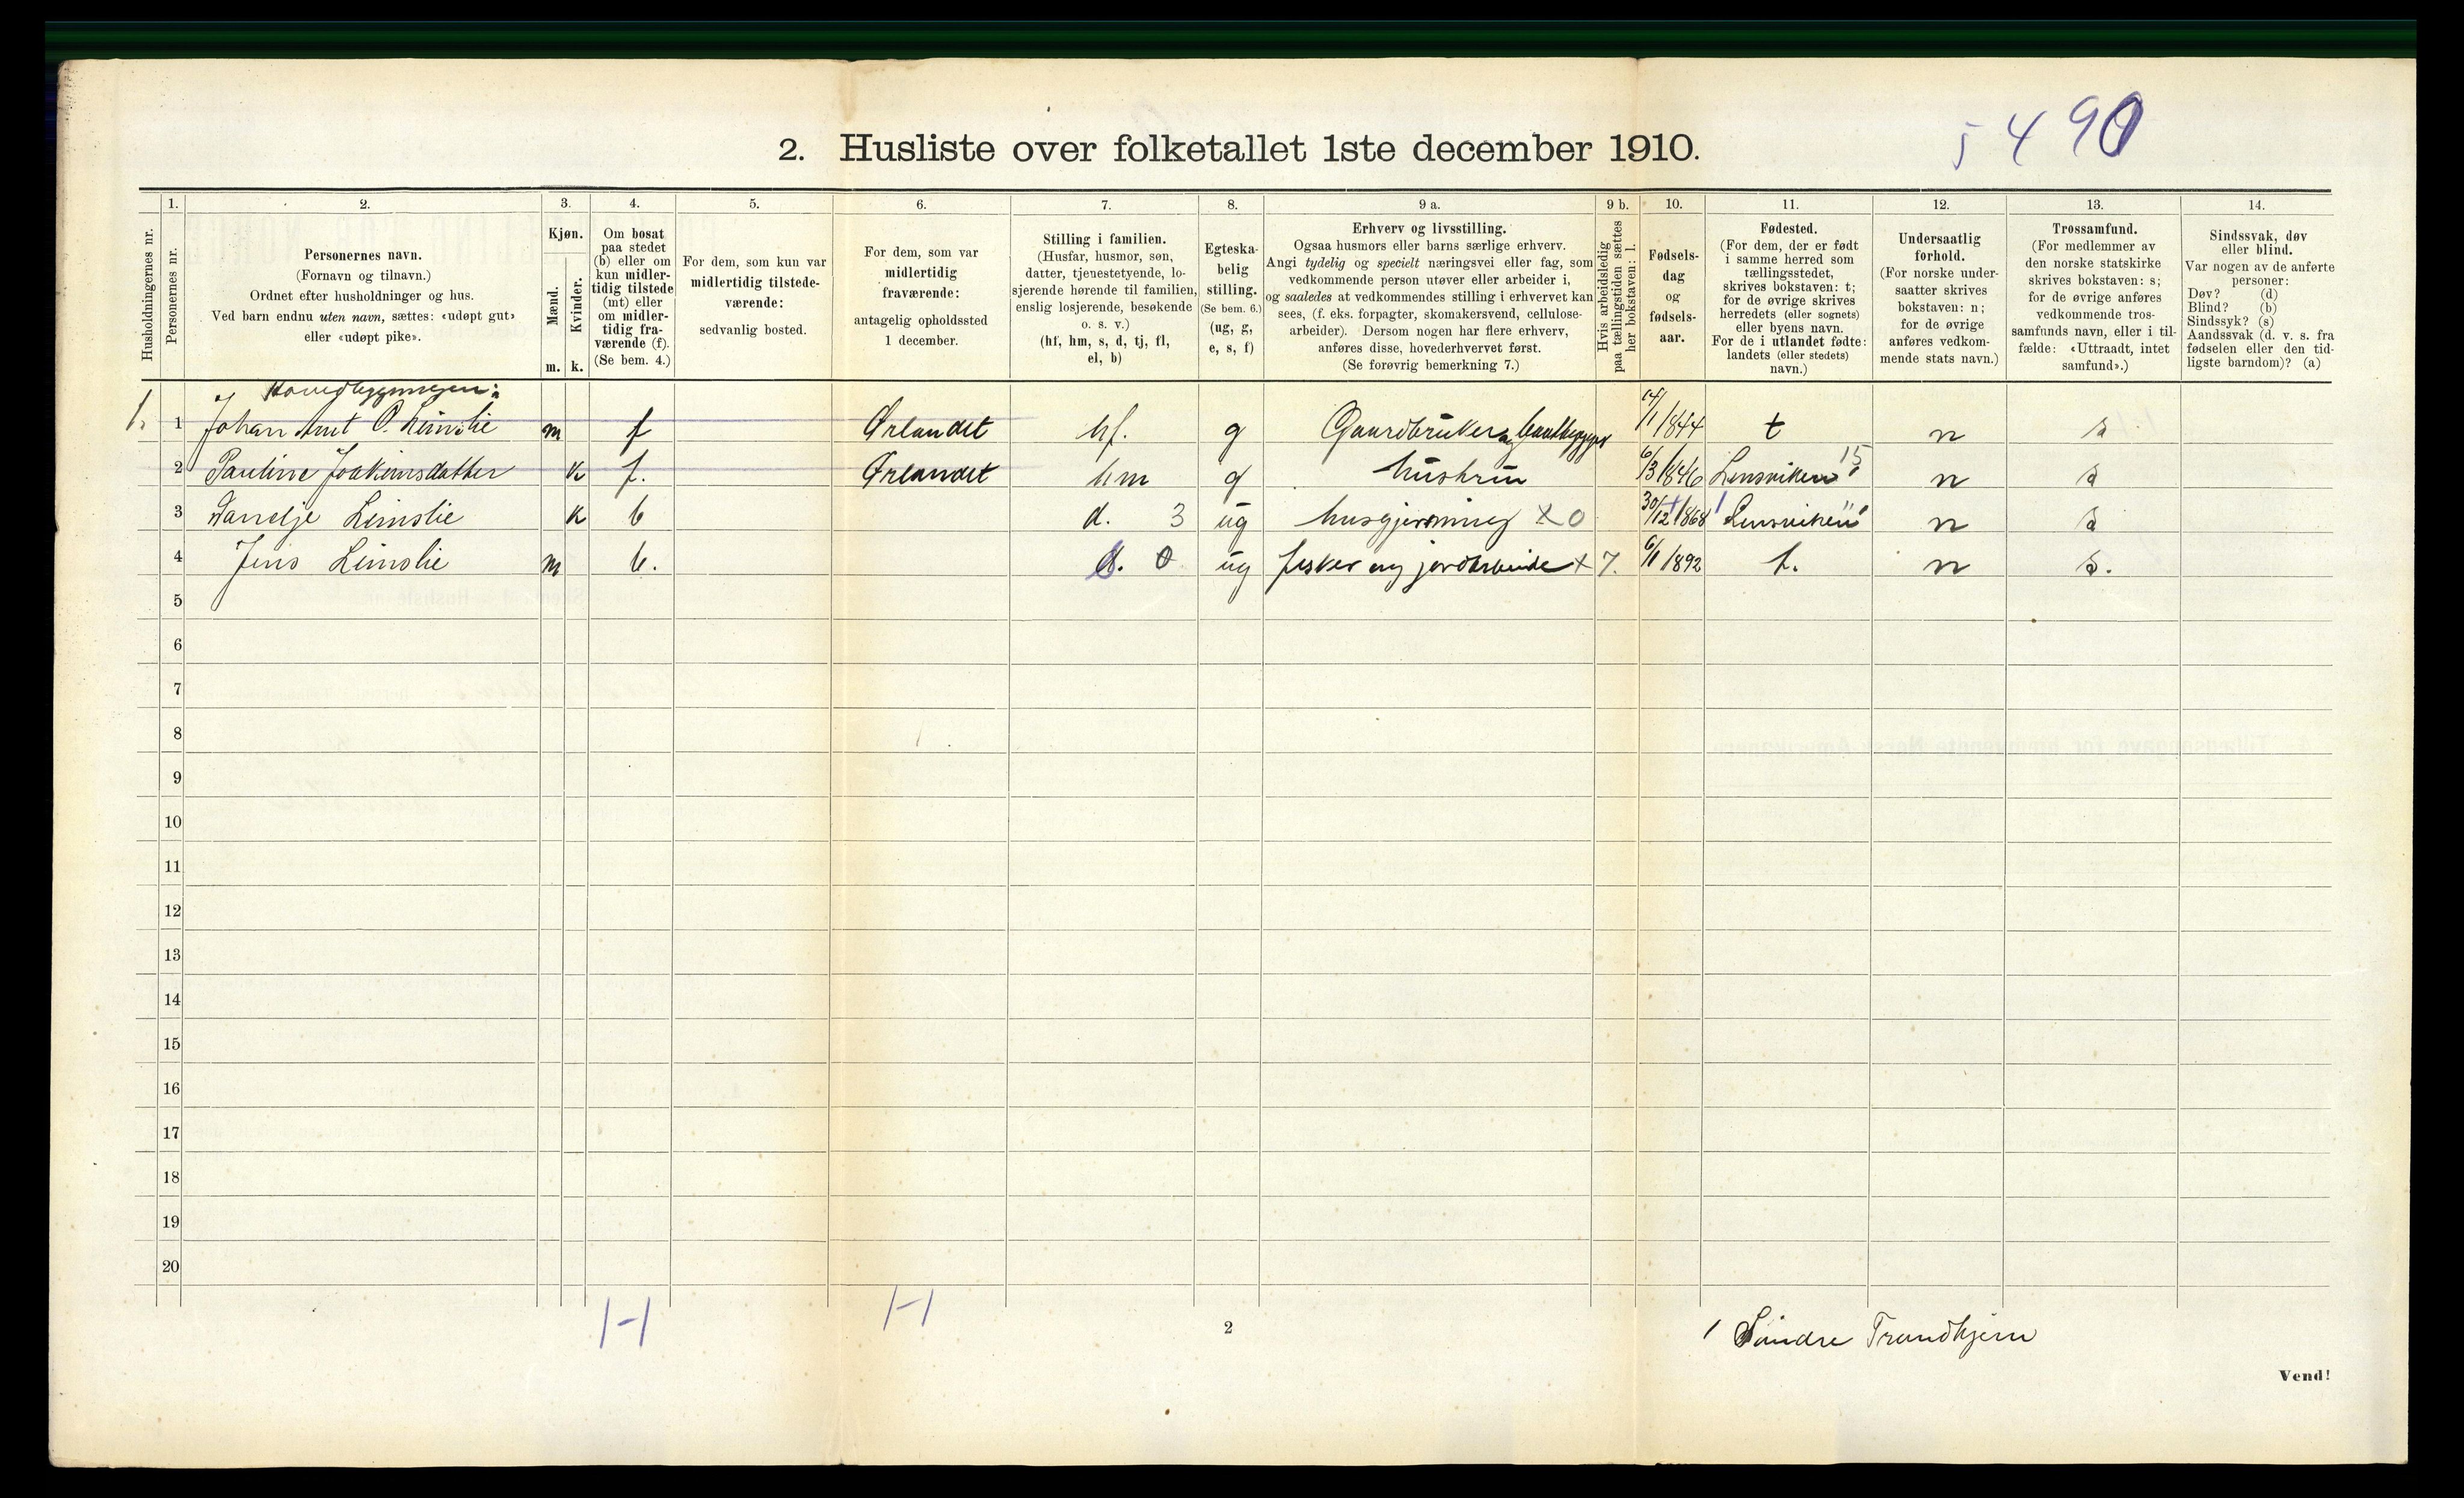 5 4 90
2. Husliste over folketallet 1ste december 1910.
Husholdningernes nr.
1.
Personernes nr.
2.
Personernes navn.
(Fornavn og tilnavn.)
Ordnet efter husholdninger og hus.
Ved barn endnu uten navn, sættes: «udøpt gut»
eller «udøpt pike».
3.
Kjøn.
Mænd.
Kvinder.
m. k.
4.
Om bosat
paa stedet
(b) eller om
kun midler-
tidig tilstede
(mt) eller
om midler-
tidig fra-
værende (f).
(Se bem. 4.)
5.
For dem, som kun var
midlertidig tilstede-
værende:
sedvanlig bosted.
6.
For dem, som var
midlertidig
fraværende:
antagelig opholdssted
1 december.
7.
Stilling i familien.
(Husfar, husmor, søn,
datter, tjenestetyende, lo-
sjerende hørende til familien,
enslig losjerende, besøkende
o. s. v.)
(hf, hm, s, d, tj, fl,
el, b)
8.
Egteska-
belig
stilling.
(Se bem. 6.)
(ug, g,
e, s, f)
9 a.
Erhverv og livsstilling.
Ogsaa husmors eller barns særlige erhverv.
Angi tydelig og specielt næringsvei eller fag, som
vedkommende person utøver eller arbeider i,
og saaledes at vedkommendes stilling i erhvervet kan
sees, (f. eks. forpagter, skomakersvend, cellulose-
arbeider). Dersom nogen har flere erhverv,
anføres disse, hovederhvervet først.
(Se forøvrig bemerkning 7.)
9 b.
Hvis arbeidsledig
paa tællingstiden sættes
her bokstaven: l.
10.
Fødsels-
dag
og
fødsels-
aar.
11.
Fødested.
(For dem, der er født
i samme herred som
tællingsstedet,
skrives bokstaven: t;
for de øvrige skrives
herredets (eller sognets)
eller byens navn.
For de i utlandet fødte:
landets (eller stedets)
navn.)
12.
Undersaatlig
forhold.
(For norske under-
saatter skrives
bokstaven: n;
for de øvrige
anføres vedkom-
mende stats navn.)
13.
Trossamfund.
(For medlemmer av
den norske statskirke
skrives bokstaven: s;
for de øvrige anføres
vedkommende tros-
samfunds navn, eller i til-
fælde: «Uttraadt, intet
samfund».)
14.
Sindssvak, døv
eller blind.
Var nogen av de anførte
personer:
Døv? (d)
Blind? (b)
Sindssyk? (s)
Aandssvak (d. v. s. fra
fødselen eller den tid-
ligste barndom)? (a)
Hovedbygningen:
1. 1 Johan Arnt O. Leinslie m f Ørlandet hf. g Gaardbruker og baatbygger 1844 t n s
2 Pauline Joakimsdatter k f. Ørlandet hm g hustru 6/3 1846 Lensviken 15 n s
3 Leinslie k b d. 3 ug husgjerning x 0 30/12 1868 Lensviken " n s
4 Jens Leinslie m b. 0 ug fisker og jordarbeide x 7. 1892 t. n s.
5
6
7
8
9
10
11
12
13
14
15
16
17
18
19
20
1-1 1-1
2
Søndre Trondhjem
Vend!